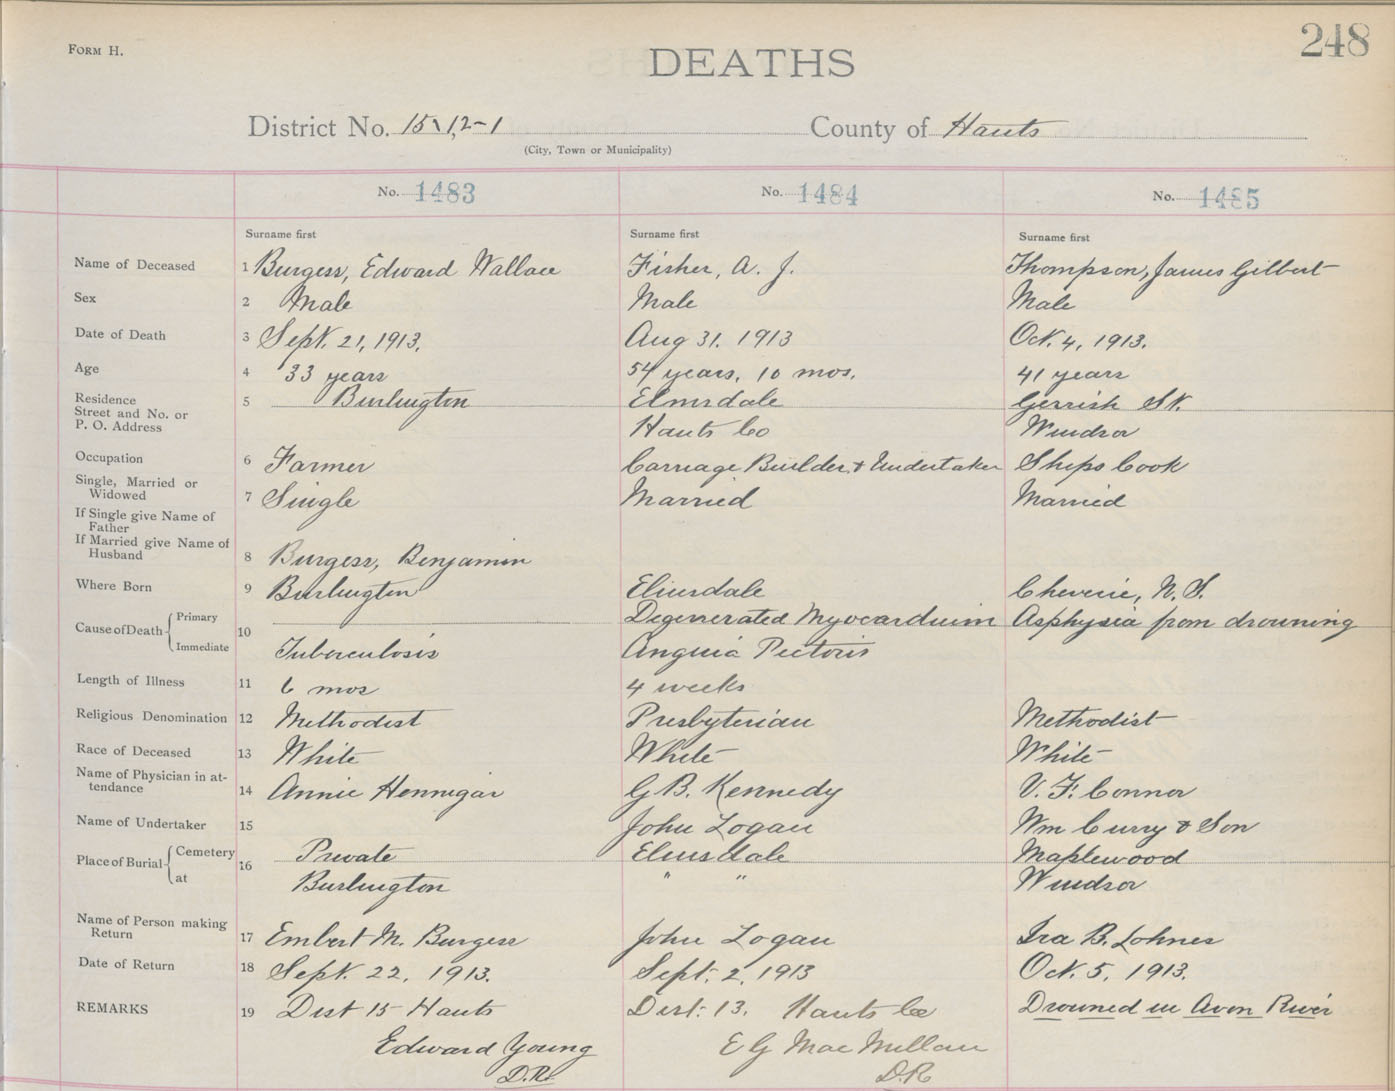 248
FORM H.
DEATHS
District No. 15 \ 1,2-1 County of Hants
(City, Town or Municipality)
No. 1483 No. 1484 No. 1485
Surname first Surname first Surname first
Name of Deceased 1 Burgess, Edward Wallace Fisher, A. J. Thompson, James Gilbert
Sex 2 Male Male Male
Date of Death 3 Sept. 21, 1913. Aug 31. 1913 Oct. 4, 1913.
Age 4 33 years 54 years, 10 mos. 41 years
Residence 5 Burlington Elmsdale Gerrish St.
Street and No. or
P. O. Address Hants Co Windsor
Occupation 6 Farmer Carriage Builder & Undertaker Ships Cook
Single, Married or
Widowed 7 Single Married Married
If Single give Name of
Father
If Married give Name of
Husband 8 Burgess, Benjamin
Where Born 9 Burlington Elmsdale Cheverie, N. S.
Cause of Death 10 Primary Degenerated Myocardium Asphysia from drowning
Immediate Tuberculosis Anguia Pectoris
Length of Illness 11 6 mos 4 weeks
Religious Denomination 12 Methodist Presbyterian Methodist
Race of Deceased 13 White White White
Name of Physician in at-
tendance 14 Annie Hennigar G B. Kennedy V. F. Connor
Name of Undertaker 15 John Logan Wm Curry & Son
Place of Burial 16 Cemetery Private Elmsdale Maplewood
at Burlington " " Windsor
Name of Person making
Return 17 Embert M. Burgess John Logan Ira B. Lohnes
Date of Return 18 Sept. 22, 1913. Sept. 2, 1913 Oct. 5, 1913.
REMARKS 19 Dist 15 Hants Dist. 13. Hants Co Drowned in Avon River
Edward Young E G MacMillan
D.R. D.R